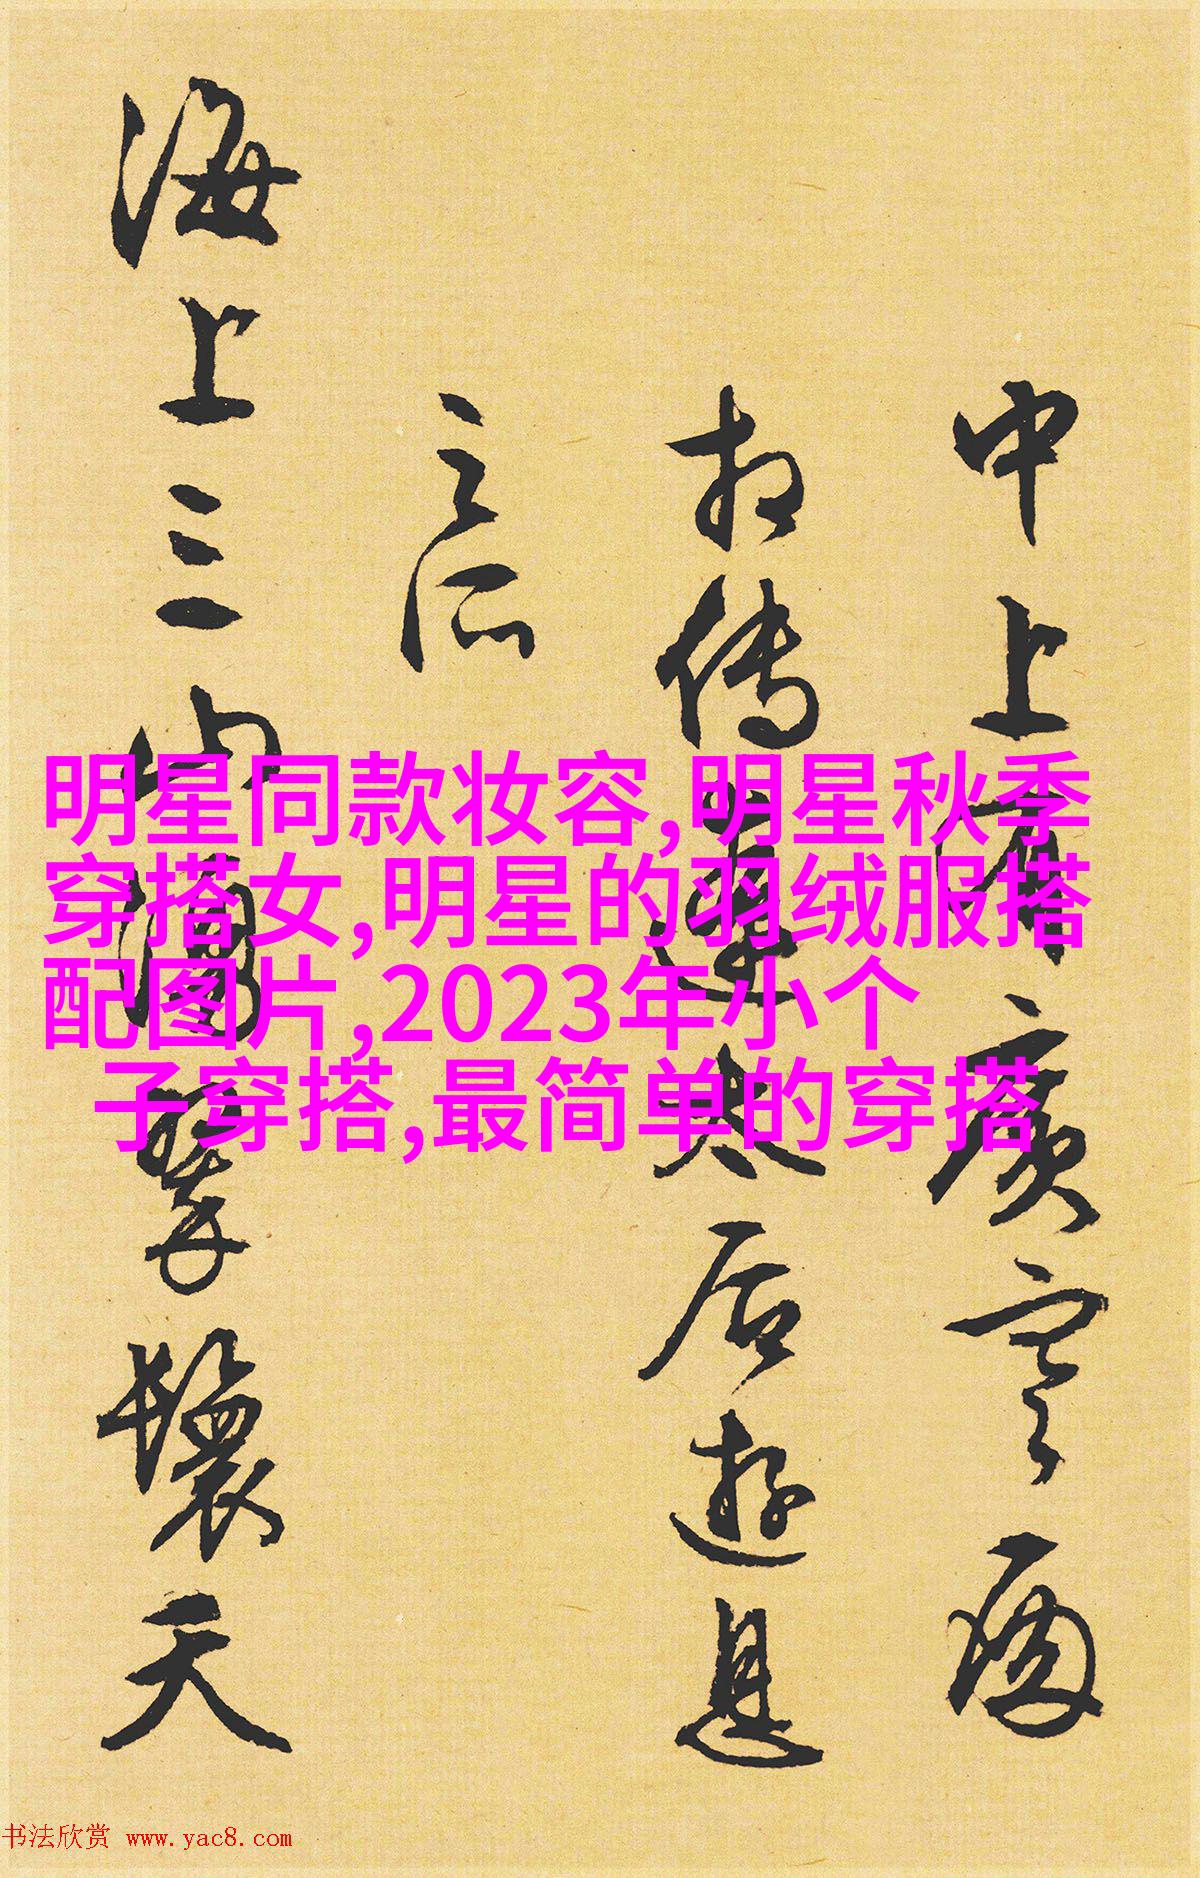 中上有廣寒
相傳遼太后遊息
之所
海上三山翠鬟天
明星同款妆容,明星秋季
穿搭女,明星的羽绒服搭
配图片,2023年小个
子穿搭,最简单的穿搭
书法欣赏 www.yac8.com